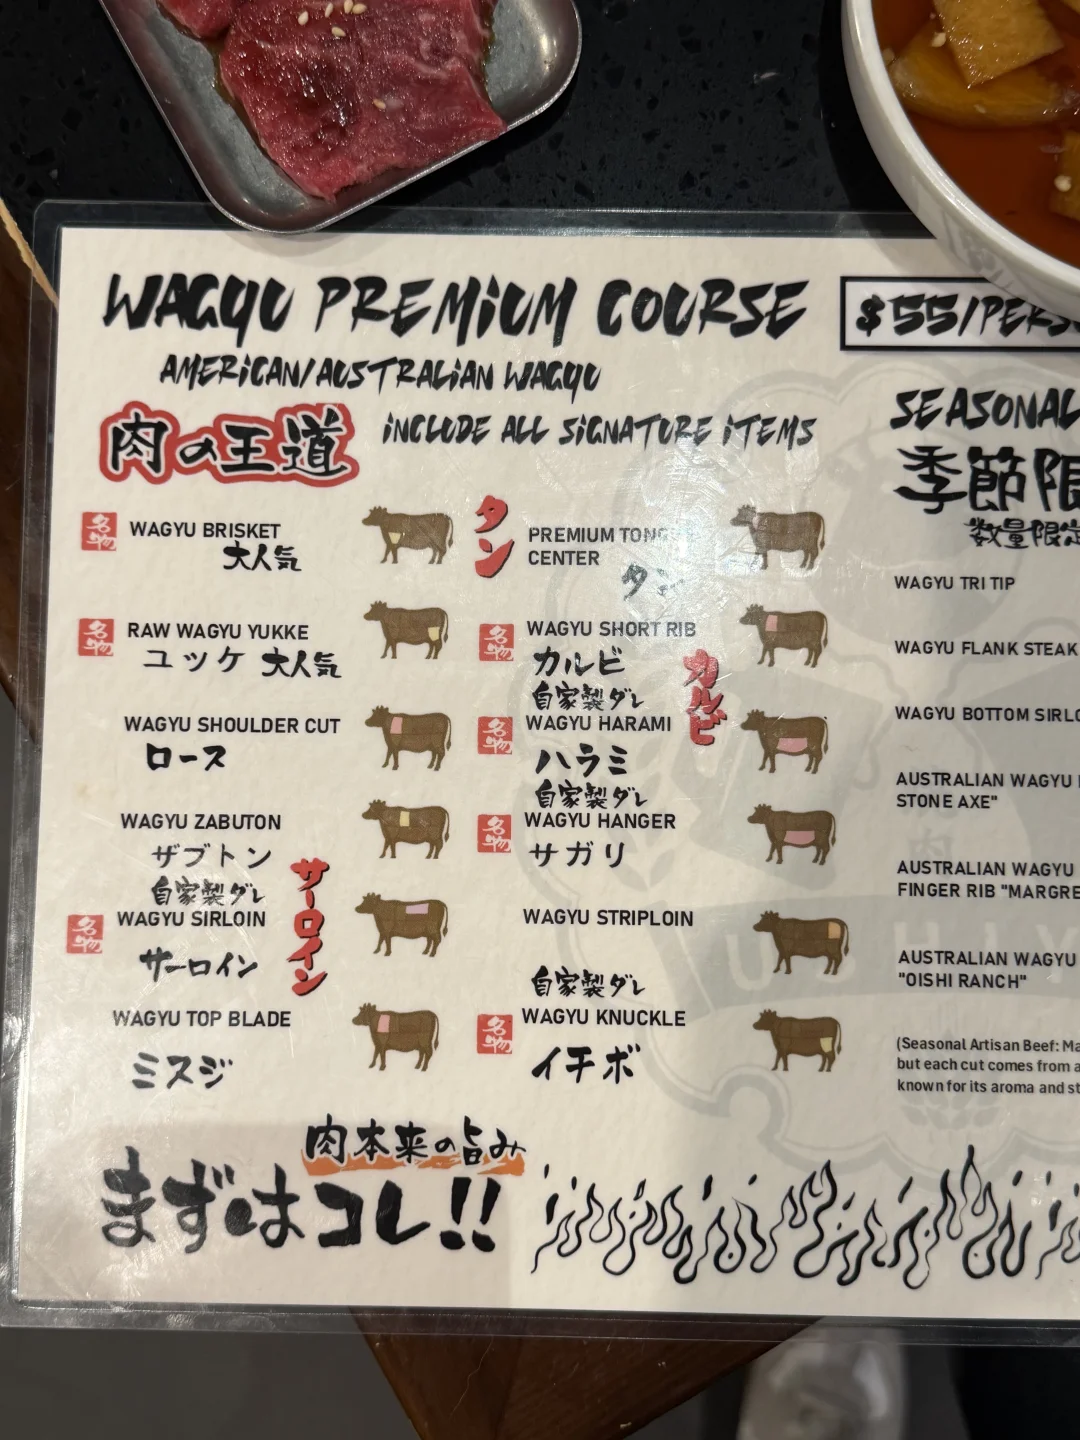 WAGYU PREMIUM COURSE
$55/PERSO
AMERICAN/AUSTRALIAN WAGYU
肉の王道
INCLUDE ALL SIGNATURE ITEMS
名物
WAGYU BRISKET
大人気
名物
RAW WAGYU YUKKE
ユッケ 大人気
WAGYU SHOULDER CUT
ロース
WAGYU ZABUTON
ザブトン
自家製ダレ
名物
WAGYU SIRLOIN
サーロイン
サーロイン
WAGYU TOP BLADE
ミスジ
タン
PREMIUM TONGUE
CENTER
タン
名物
WAGYU SHORT RIB
カルビ
カルビ
自家製ダレ
名物
WAGYU HARAMI
ハラミ
自家製ダレ
名物
WAGYU HANGER
サガリ
WAGYU STRIPLOIN
自家製ダレ
名物
WAGYU KNUCKLE
イチボ
SEASONAL
季節限
数量限定
WAGYU TRI TIP
WAGYU FLANK STEAK
WAGYU BOTTOM SIRLO
AUSTRALIAN WAGYU
STONE AXE"
AUSTRALIAN WAGYU
FINGER RIB "MARGRE
AUSTRALIAN WAGYU
"OISHI RANCH"
(Seasonal Artisan Beef: Ma
but each cut comes from a
known for its aroma and st
肉本来の旨み
まずはコレ!!